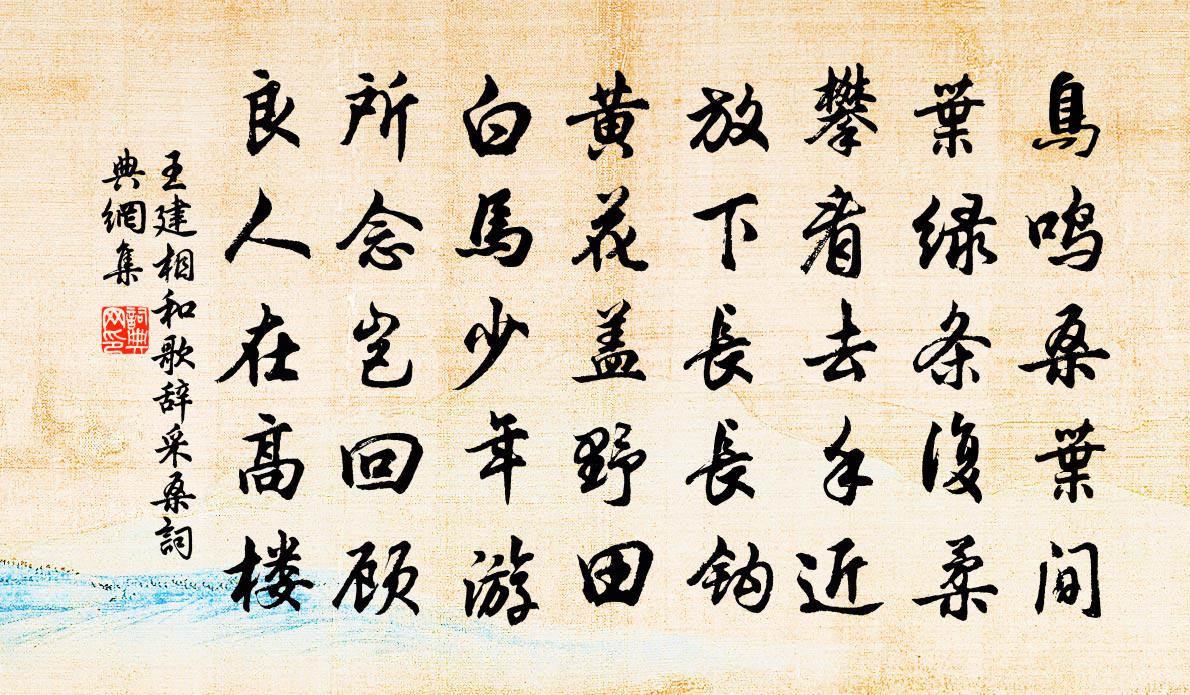 鳥鸣桑葉间
葉緑条復柔
攀看去手近
放下長長钩
黄花盖野田
白馬少年游
所念岂回顾
良人在高楼
王建相和歌辞采桑詞
典網集
詞典網印